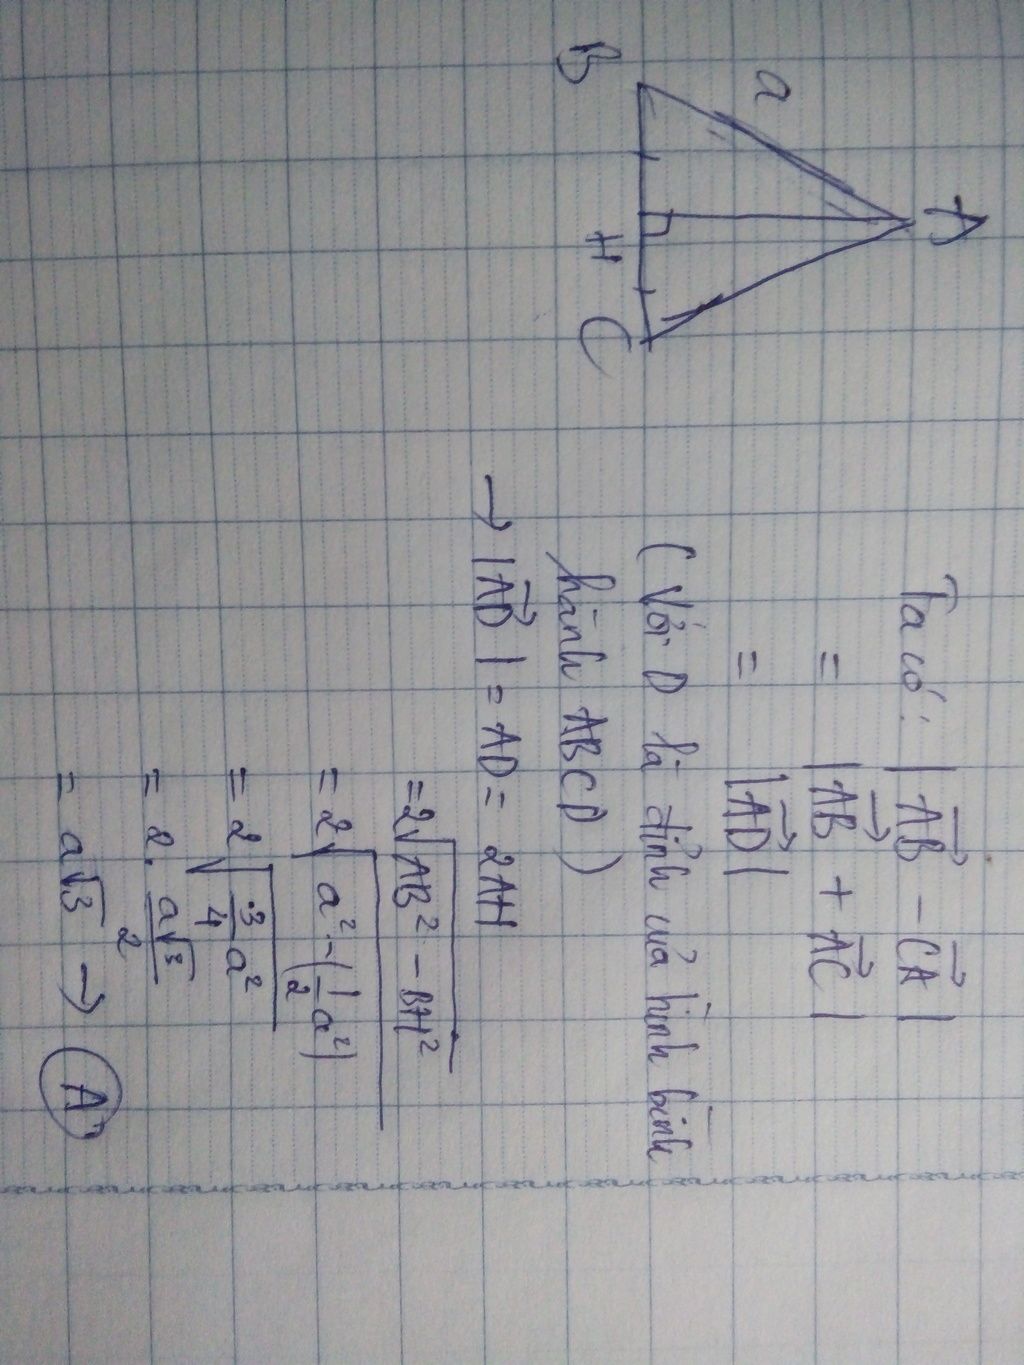 A
a
B
H
C
Ta có: |AB→ - CA→|
= |AB→ + AC→|
= |AD→|
(Với D là đỉnh của hình bình
hành ABCD)
→ |AD→| = AD = 2AH
= 2√(AB² - BH²)
= 2√(a² - (1/2 a²))
= 2√(3/4 a²)
= 2. a√3/2
= a√3 → A